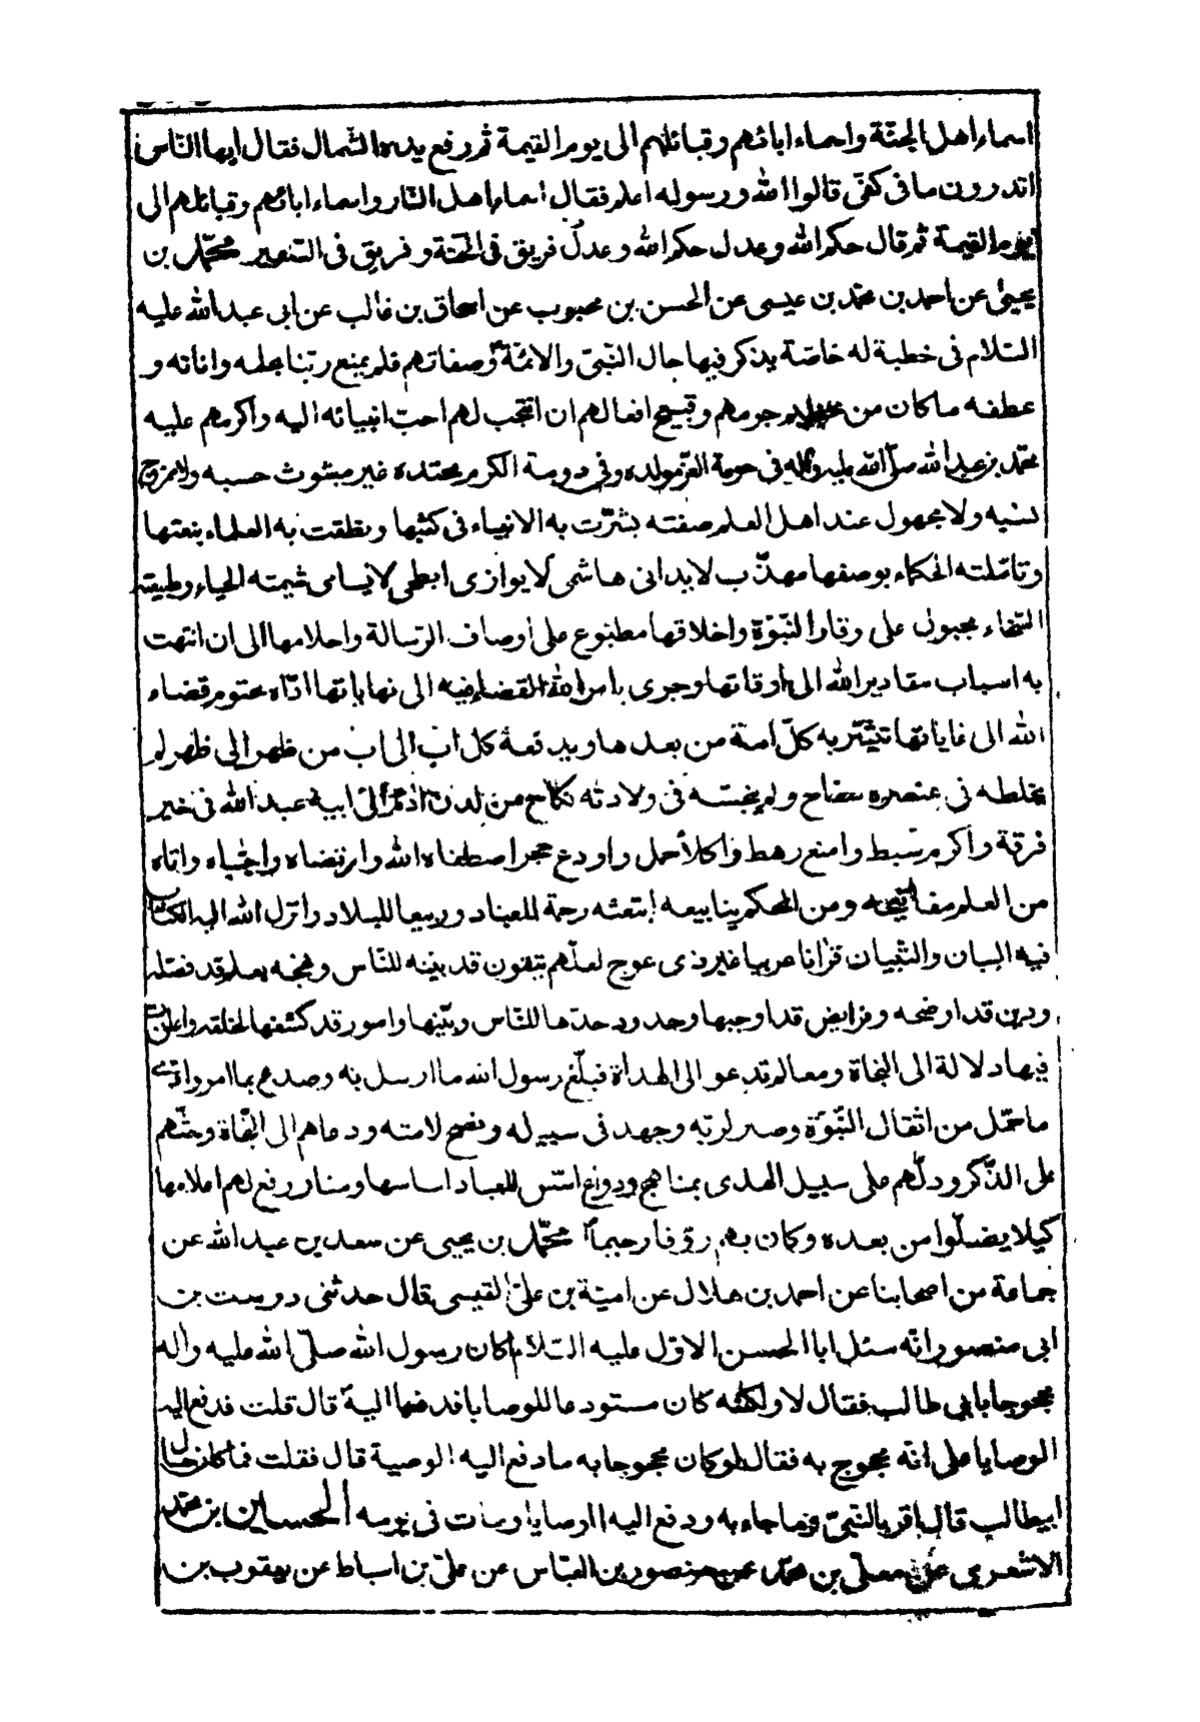 اسماء اهل الجنّة واسماء ابائهم وقبائلهم الى يوم القيمة ثم رفع يده الشمال فقال ايها النّاس
اتدرون ما فى كفّى قالوا الله ورسوله اعلم فقال اسماء اهل النّار واسماء ابائهم وقبائلهم الى
يوم القيمة ثم قال حكم الله وعدل حكم الله وعدل فريق فى الجنة وفريق فى السّعير محمّد بن
يحيىٰ عن احمد بن محمّد بن عيسى عن الحسن بن محبوب عن اسحاق بن غالب عن ابى عبد الله عليه
السّلام فى خطبة له خاصّة يذكر فيها حال النّبىّ والائمّة وصفاتهم فلم يمنع ربّنا بحلمه واناته و
عطفه ما كان من جرمهم وقبيح افعالهم ان انتجب لهم احبّ انبيائه اليه واكرمهم عليه
محمّد بن عبد الله صلّى الله عليه واله فى حومة العزّ مولده وفى دومة الكرم محتده غير مشوب حسبه ولا ممزوج
نسبه ولا مجهول عند اهل العلم صفته بشّرت به الانبياء فى كتبها ونطقت به العلماء بنعتها
وتامّلته الحكماء بوصفها مهذّب لا يدانى هاشمى لا يوازى ابطحى لا يسامى شيمته الحياء وطبيعته
السّخاء مجبول على وقار النّبوّة واخلاقها مطبوع على اوصاف الرّسالة واحلامها الى ان انتهت
به اسباب مقادير الله الى اوقاتها وجرى بامر الله القضاء فيه الى نهاياتها ادّاه محتوم قضاء
الله الى غاياتها تبشّر به كلّ امة من بعدها ويدفعه كل اب الى اب من ظهر الى ظهر لم
يخلطه فى عنصره سفاح ولم ينجسه فى ولادته نكاح من لدن ادم الى ابيه عبد الله فى خير
فرقة واكرم سبط وامنع رهط واكلأ حمل واودع حجر اصطفاه الله وارتضاه واجتباه واتاه
من العلم مفاتيحه ومن الحكم ينابيعه ابتعثه رحمة للعباد وربيعا للبلاد وانزل الله اليه الكتاب
فيه البيان والتبيان قرانا عربيا غير ذى عوج لعلّهم يتقون قد بيّنه للنّاس ونهجه بعلم قد فصّله
ودين قد اوضحه وفرايض قد اوجبها وحدود حدّها للنّاس وبيّنها وامور قد كشفها لخلقه واعلن
فيها دلالة الى النجاة ومعالم تدعو الى الهداة فبلّغ رسول الله ما ارسل به وصدع بما امر وادّى
ما حمّل من اثقال النّبوّة وصبر لربّه وجهد فى سبيله ونصح لامته ودعاهم الى النّجاة وحثّهم
على الذّكر ودلّهم على سبيل الهدى بمناهج ودواع اسّس للعباد اساسها ومنار رفع لهم اعلامها
كيلا يضلّوا من بعده وكان بهم رؤفا رحيماً محمّد بن يحيى عن سعد بن عبد الله عن
جماعة من اصحابنا عن احمد بن هلال عن اميّة بن علىّ القيسى قال حدثنى درست بن
ابى منصور انّه سئل ابا الحسن الاوّل عليه السّلام اكان رسول الله صلّى الله عليه واله
محجوجا بابى طالب فقال لا ولكنّه كان مستودعا للوصايا فدفعها اليه قال قلت فدفع اليه
الوصايا على انّه محجوج به فقال لو كان محجوجا به ما دفع اليه الوصية قال فقلت فما كان حال
ابيطالب قال اقر بالنّبىّ وبما جاء به ودفع اليه الوصايا ومات فى يومه الحسين بن محمّد
الاشعرى عن معلّى بن محمّد عن منصور بن العبّاس عن علىّ بن اسباط عن يعقوب بن